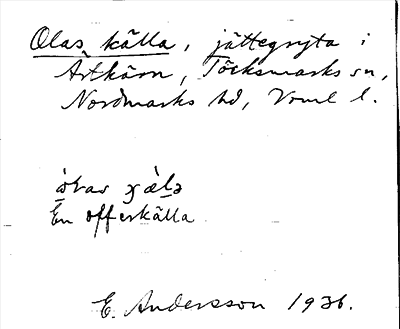 Olas källa, jättegryta i
Årtkärn, Töcksmarks sn,
Nordmarks hd, Vrml l.
En offerkälla
E. Andersson 1936.